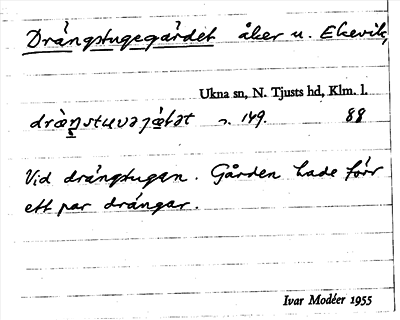 Drängstugegärdet åker u. Ekevik,
Ukna sn, N. Tjusts hd, Klm. l.
149. 88
Vid drängstugan. Gården hade förr
ett par drängar.
Ivar Modéer 1955